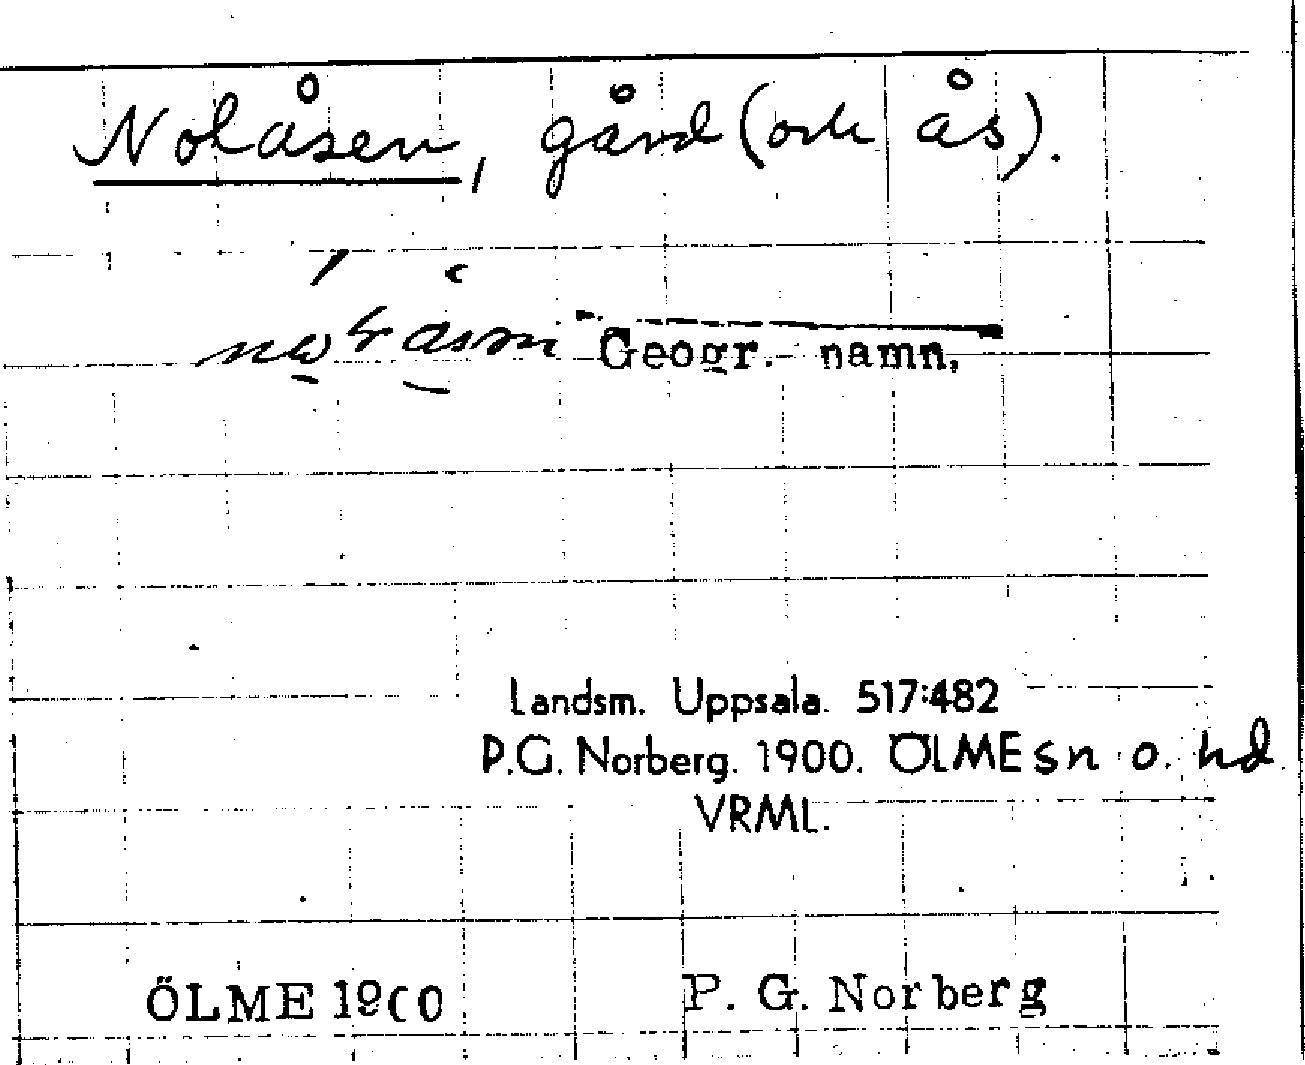 Nolåsen, gård (och ås).
Geogr. namn,
Landsm. Uppsala. 517:482
P.G. Norberg. 1900. ÖLME sn o. hd
VRML.
ÖLME 1900 P. G. Norberg